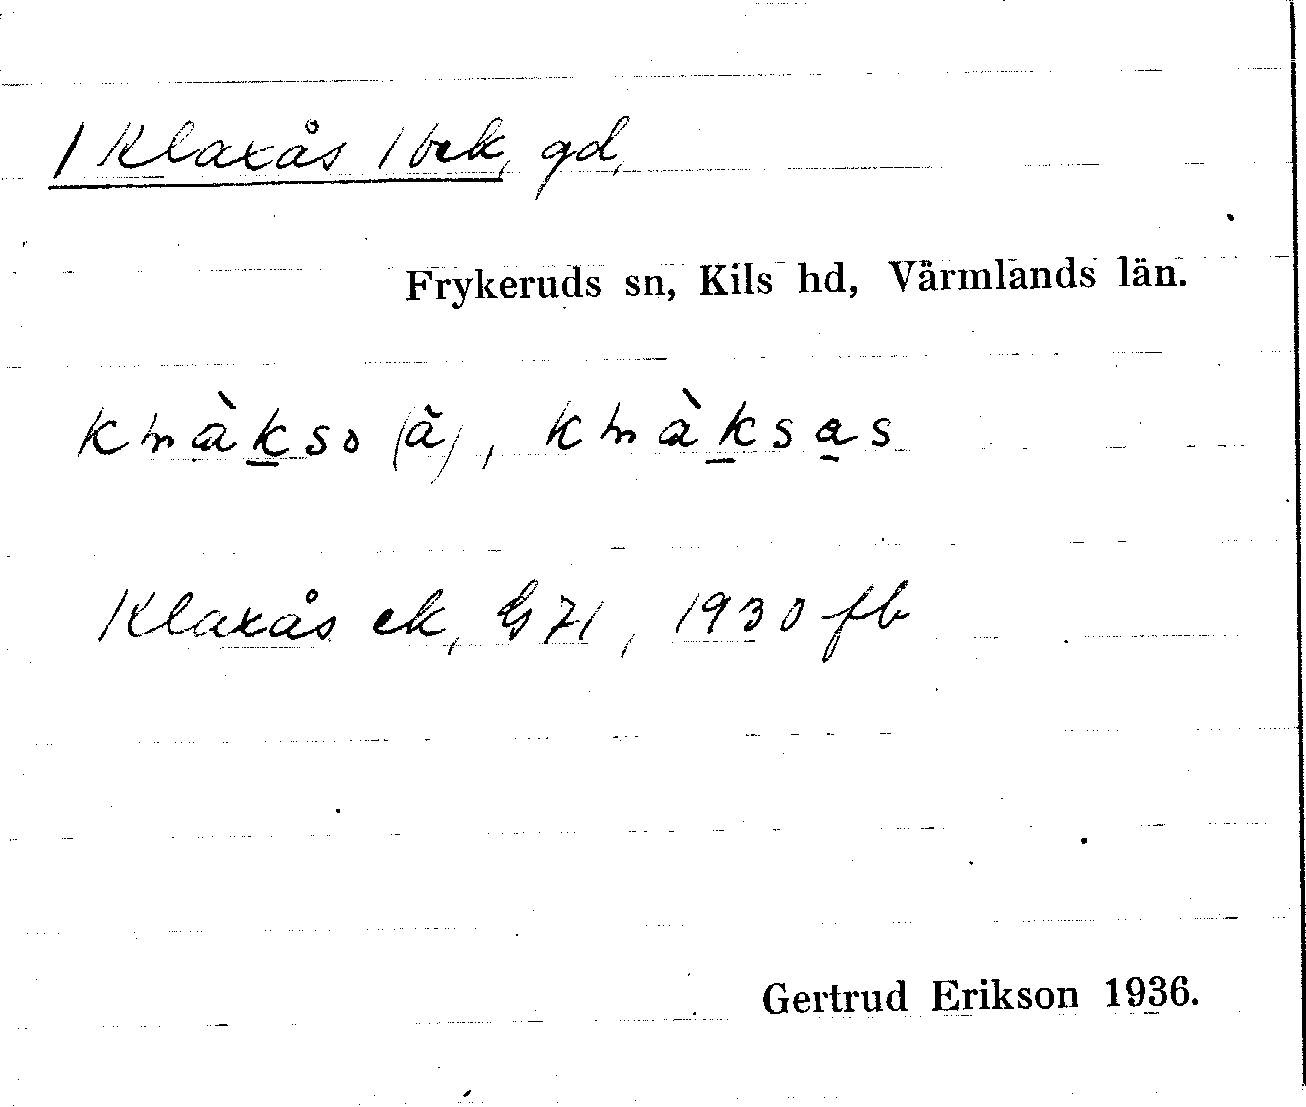 1 Klaxås 1 bek, gd,
Frykeruds sn, Kils hd, Värmlands län.
Klaxås ek, G 71, 1930 fb
Gertrud Erikson 1936.